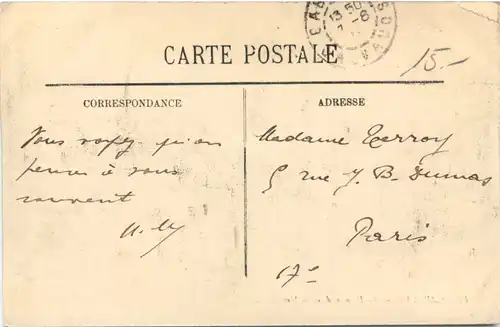 13 50
CARTE POSTALE
15.-
CORRESPONDANCE
ADRESSE
Vous voyez qu'on
pense à vous
souvent
Madame Terroy
5 rue J. B. Dumas
Paris
17e